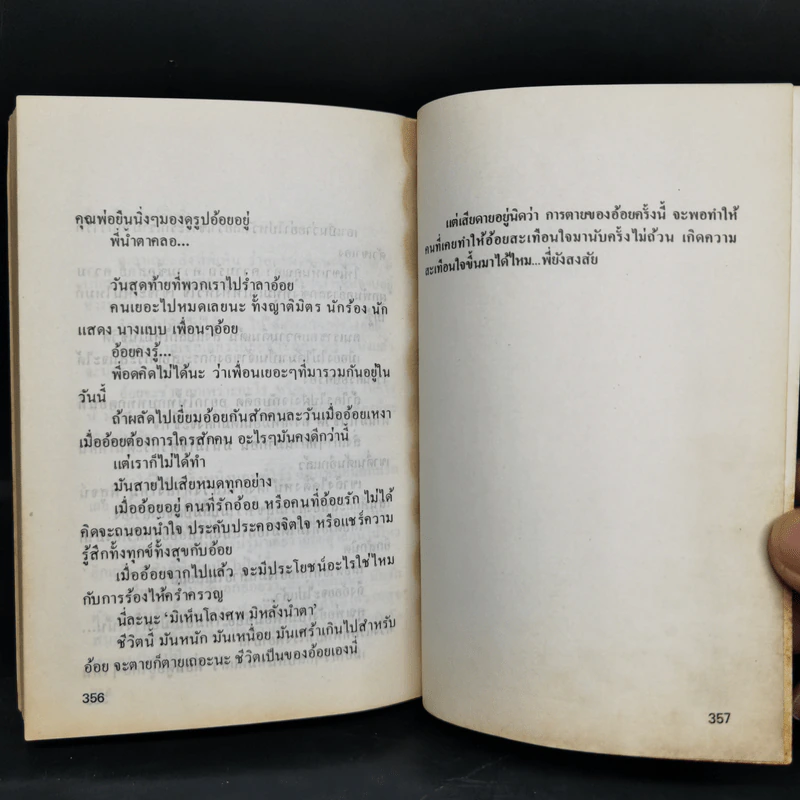 คุณพ่อยืนนิ่งๆมองดูรูปอ้อยอยู่
พี่น้ำตาคลอ...
วันสุดท้ายที่พวกเราไปร่ำลาอ้อย
คนเยอะไปหมดเลยนะ ทั้งญาติมิตร นักร้อง นัก
แสดง นางแบบ เพื่อนๆอ้อย
อ้อยคงรู้...
พี่อดคิดไม่ได้นะ ว่าเพื่อนเยอะๆที่มารวมกันอยู่ใน
วันนี้
ถ้าผลัดไปเยี่ยมอ้อยกันสักคนละวันเมื่ออ้อยเหงา
เมื่ออ้อยต้องการใครสักคน อะไรๆมันคงดีกว่านี้
แต่เราก็ไม่ได้ทำ
มันสายไปเสียหมดทุกอย่าง
เมื่ออ้อยอยู่ คนที่รักอ้อย หรือคนที่อ้อยรัก ไม่ได้
คิดจะถนอมน้ำใจ ประคับประคองจิตใจ หรือแชร์ความ
รู้สึกทั้งทุกข์ทั้งสุขกับอ้อย
เมื่ออ้อยจากไปแล้ว จะมีประโยชน์อะไรใช่ไหม
กับการร้องไห้คร่ำครวญ
นี่ละนะ ‘มิเห็นโลงศพ มิหลั่งน้ำตา’
ชีวิตนี้ มันหนัก มันเหนื่อย มันเศร้าเกินไปสำหรับ
อ้อย จะตายก็ตายเถอะนะ ชีวิตเป็นของอ้อยเองนี่
356
แต่เสียดายอยู่นิดว่า การตายของอ้อยครั้งนี้ จะพอทำให้
คนที่เคยทำให้อ้อยสะเทือนใจมานับครั้งไม่ถ้วน เกิดความ
สะเทือนใจขึ้นมาได้ไหม...พี่ยังสงสัย
357